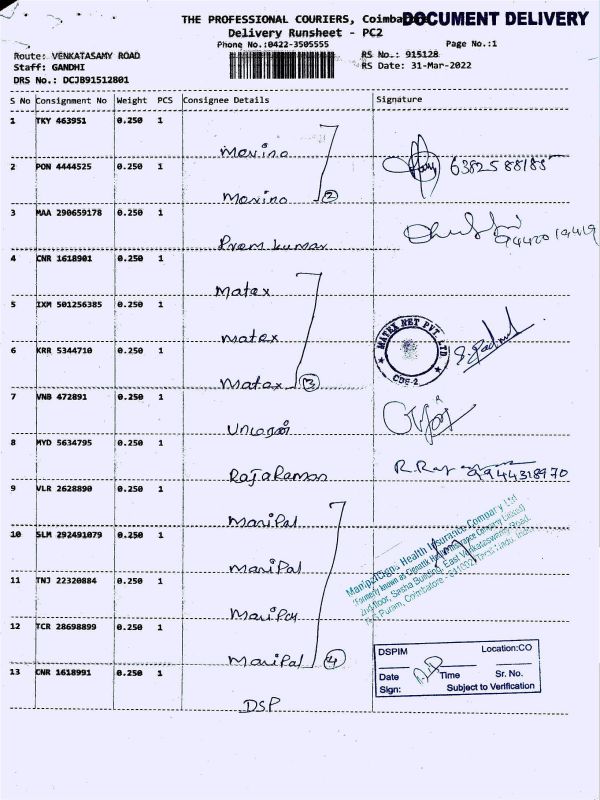 THE PROFESSIONAL COURIERS, Coimba
DOCUMENT DELIVERY
Delivery Runsheet - PC2
Phone No.:0422-3505555
Page No.:1
Route: VENKATASAMY ROAD
RS No.: 915128
Staff: GANDHI
RS Date: 31-Mar-2022
DRS No.: DCJB91512801
S No Consignment No Weight PCS Consignee Details Signature
1 TKY 463951 0.250 1
Marino
2 PON 4444525 0.250 1
6382588185
Marino 2
3 MAA 290659178 0.250 1
Prem kumar
9442019419
4 CNR 1618901 0.250 1
Matex
5 IXM 501256385 0.250 1
Matex
MATEX NET PVT. LTD
CBE-2
6 KRR 5344710 0.250 1
Matax 3
7 VNB 472891 0.250 1
8 MYD 5634795 0.250 1
Rajaraman
R.Raj
9944318970
9 VLR 2628890 0.250 1
Manipal
10 SLM 292491079 0.250 1
Manipal
ManipalCigna Health Insurance Company Ltd
(Formerly known as CignaTTK Health Insurance Company Limited)
2nd floor, Sesha Building, East Venkataswamy Road,
R.S Puram, Coimbatore - 641002, Tamil Nadu, India
11 TNJ 22320884 0.250 1
Manipal
12 TCR 28698899 0.250 1
Manipal 4
13 CNR 1618991 0.250 1
DSP
DSPIM Location:CO
Date Time Sr. No.
Sign: Subject to Verification